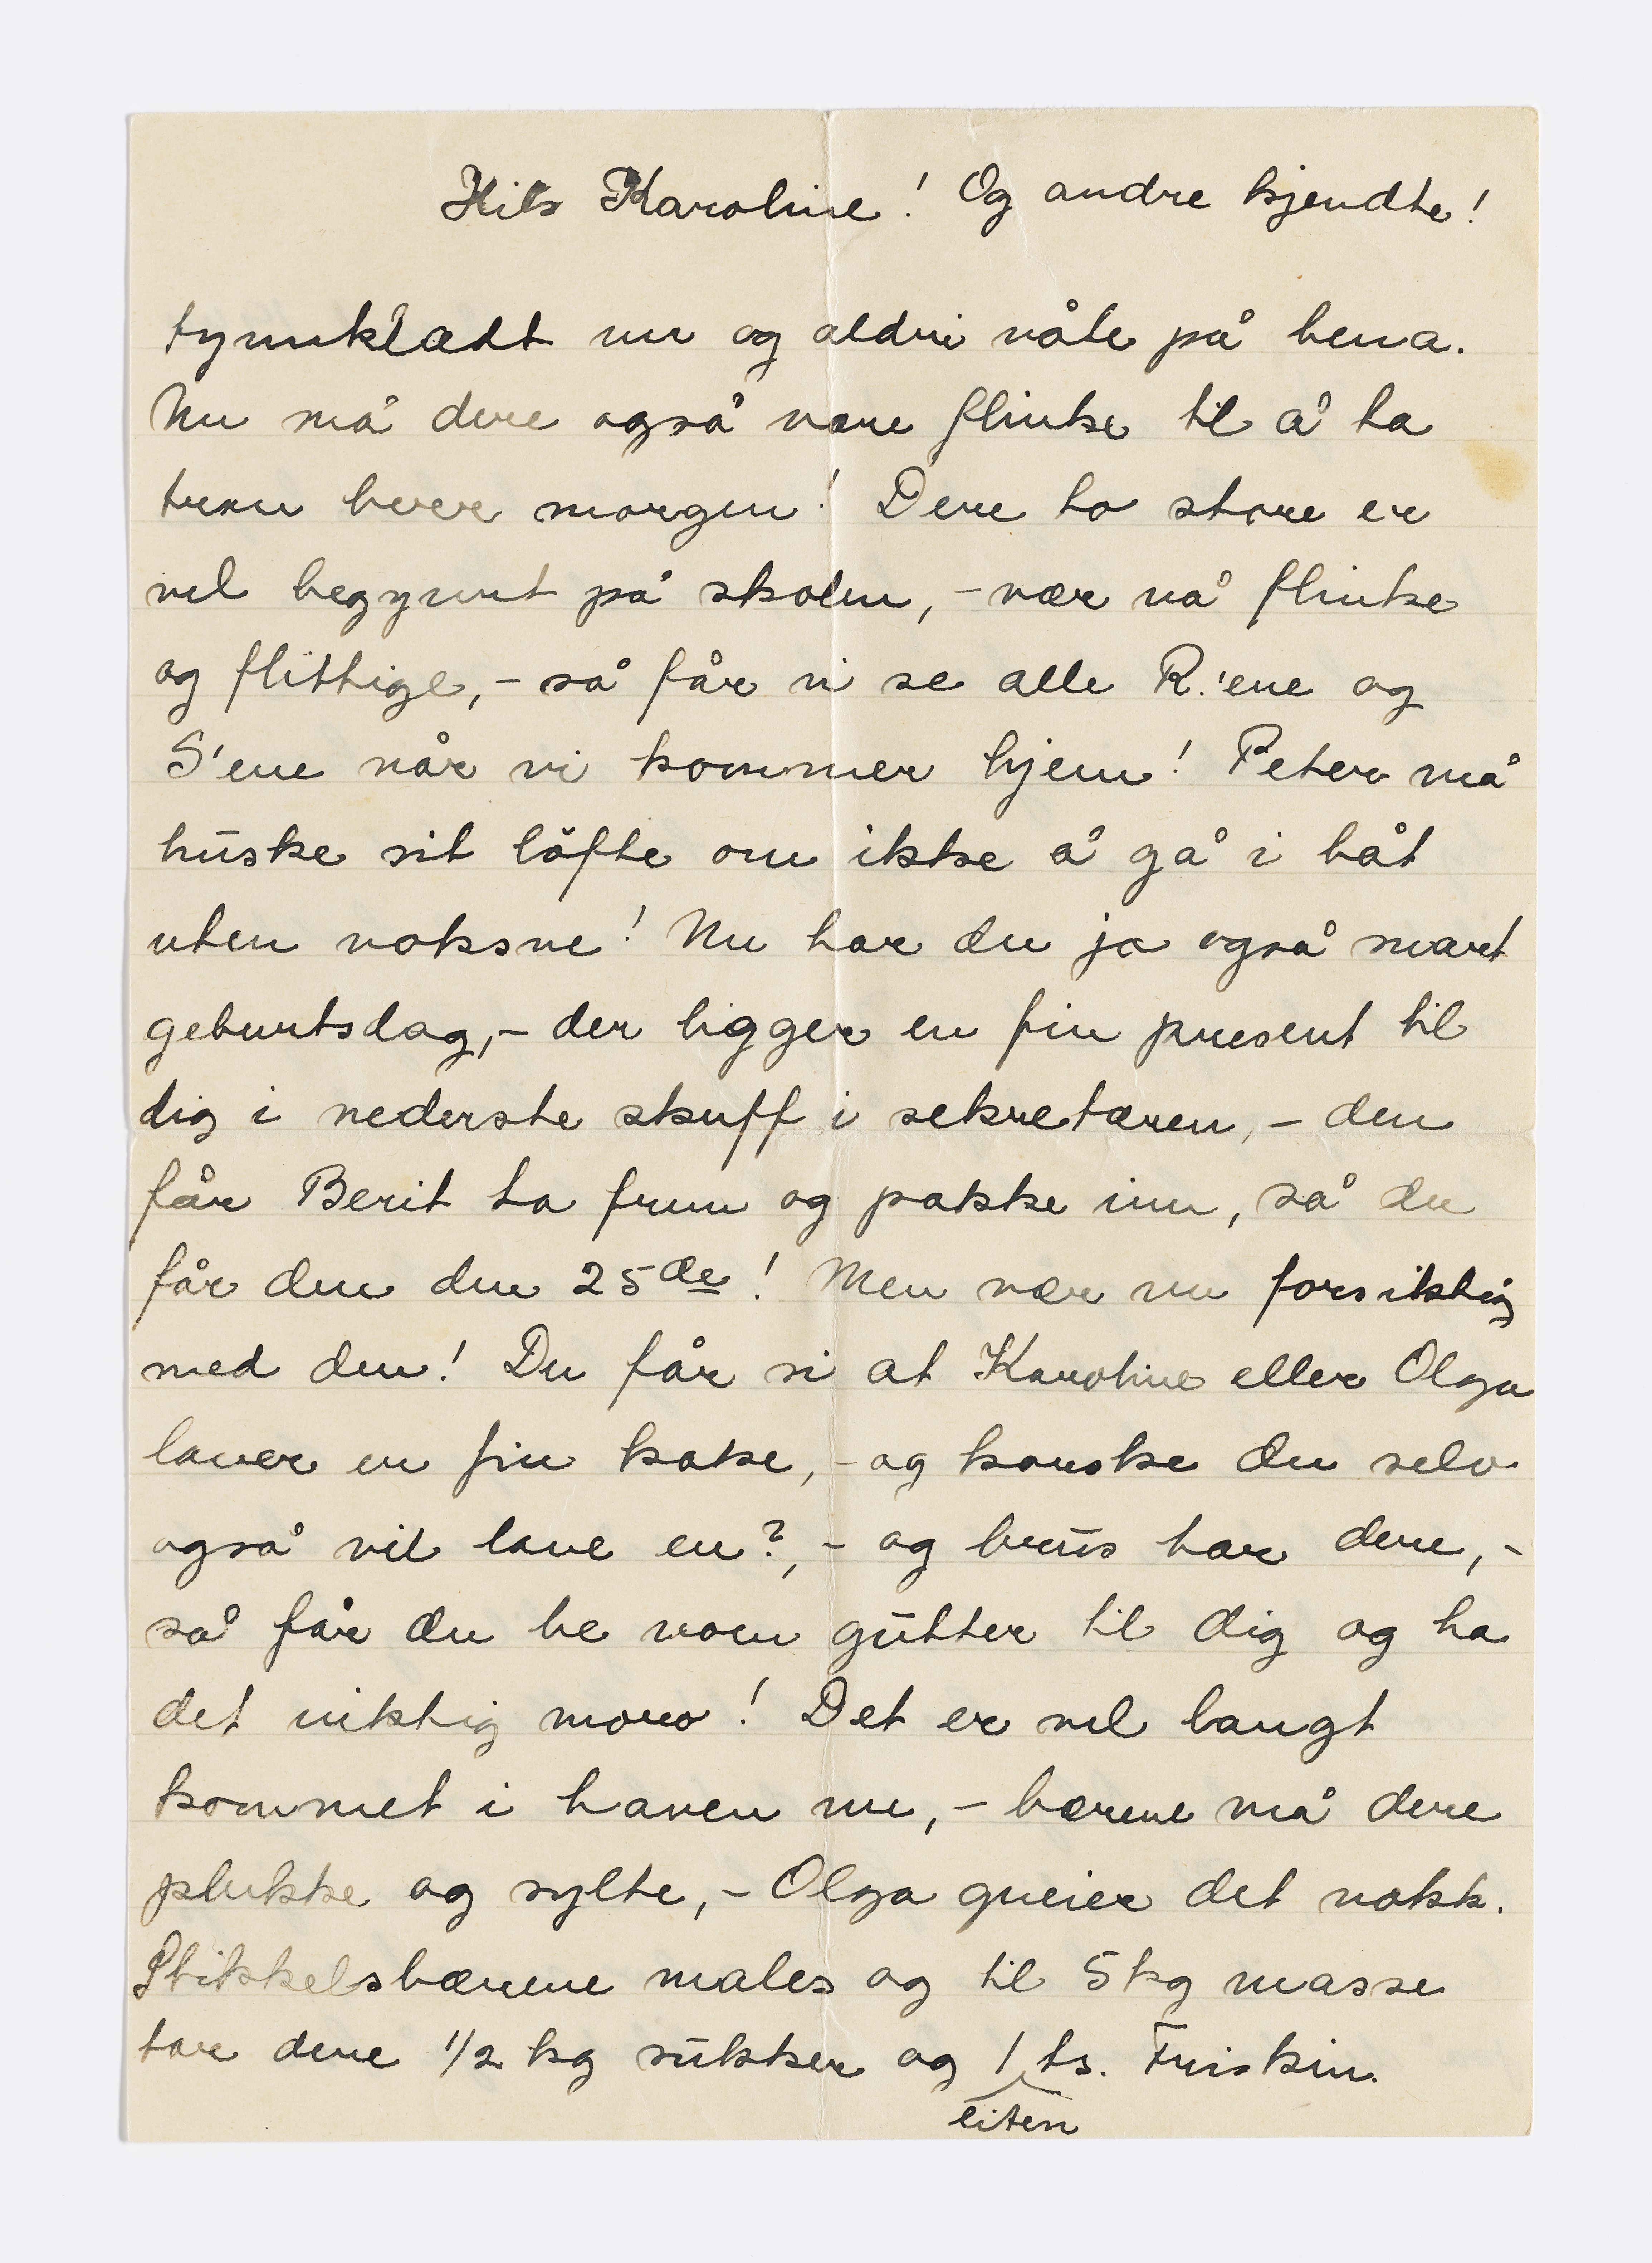 Hils Karoline! Og andre kjendte!
tynnklædt nu og aldri våte på bena.
Nu må dere også være flinke til å ta
tran hver morgen! Dere to store er
vel begynnt på skolen, – vær nå flinke
og flittige, – så får vi se alle R.'ene og
S'ene når vi kommer hjem! Peter må
huske sit löfte om ikke å gå i båt
uten voksne! Nu har du ja også snart
geburtsdag, – der ligger en fin present til
dig i nederste skuff i sekretæren, – den
får Berit ta frem og pakke inn, så du
får den den 25de! Men vær nu forsiktig
med den! Du får si at Karoline eller Olga
laver en fin kake, – og kanske du selv
også vil lave en?, – og brus har dere, –
så får du be noen gutter til dig og ha
det riktig moro! Det er vel langt
kommet i haven nu, – bærene må dere
plukke og sylte, – Olga greier det nokk.
Stikkelsbærene males og til 5 kg masse
tar dere 1/2 kg sukker og 1 ts. Friskin.
liten